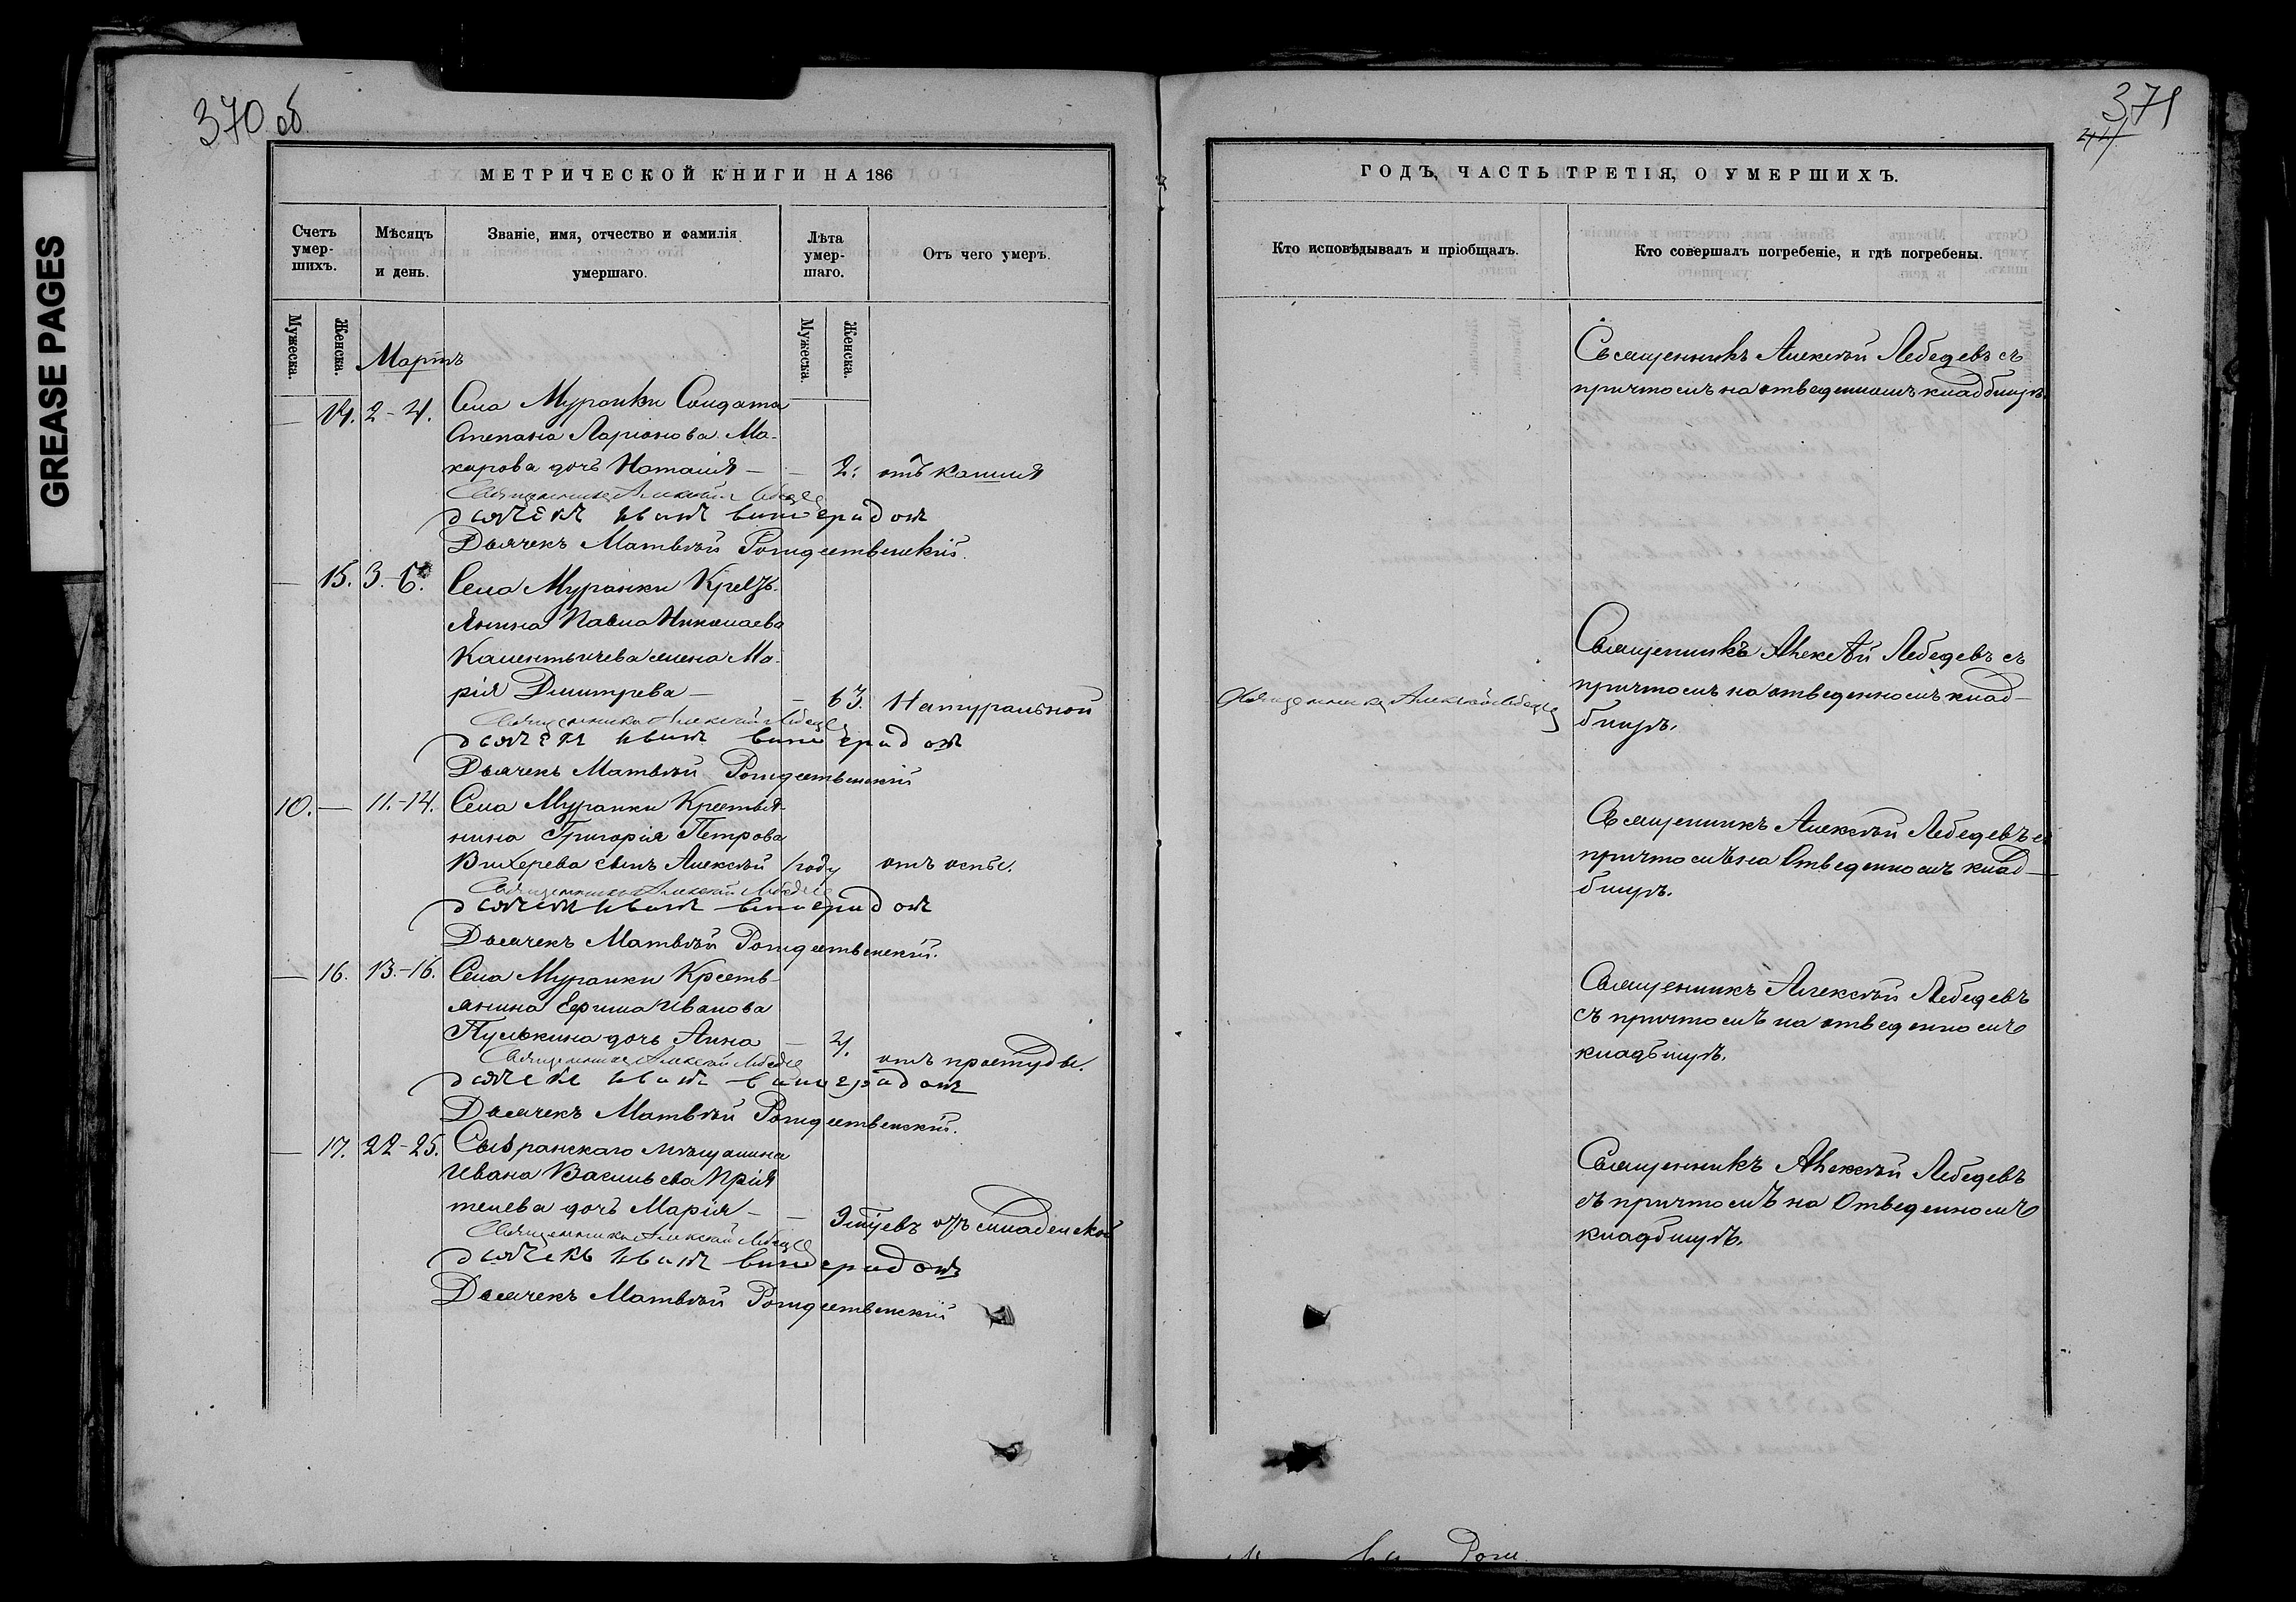 GREASE PAGES
370 об.
МЕТРИЧЕСКОЙ КНИГИ НА 186
Счетъ умер-шихъ.
Мѣсяцъ и день.
Званіе, имя, отчество и фамилія умершаго.
Лѣта умер-шаго.
Отъ чего умеръ.
Мужеска.
Женска.
Мужеска.
Женска.
Мартъ
— 14. 2-4. Села Муранки Солдата
Степана Ларионова Ма-
карова дочь Наталія — — 2. отъ кашля
Священникъ Алексѣй Лебедевъ
дьячекъ Иванъ виноградовъ
Дьячекъ Матвѣй Рождественскій.
— 15. 3.-6. Села Муранки Кресть-
янина Павла Николаева
Калентычева жена Ма-
рія Дмитрева — — 63. Натуральной
Священникъ Алексѣй Лебедевъ
дьячекъ Иванъ виноградовъ
Дьячекъ Матвѣй Рождественскій
10. — 11.-14. Села Муранки Крестья-
нина Григорія Петрова
Вихерева сынъ Алексѣй 1 году отъ оспы.
Священникъ Алексѣй Лебедевъ
дьячекъ Иванъ виноградовъ
Дьячекъ Матвѣй Рождественскій.
— 16. 13.-16. Села Муранки Кресть-
янина Ефима Иванова
Пулькина дочь Анна — 4. отъ простуды.
Священникъ Алексѣй Лебедевъ
дьячекъ Иванъ виноградовъ
Дьячекъ Матвѣй Рождественскій.
— 17. 22-25. Сызранскаго мѣщанина
Ивана Васильева Прія
телева дочь Марія — — 9 мѣцевъ отъ младенской
Священникъ Алексѣй Лебедевъ
дьячекъ Иванъ виноградовъ
Дьячекъ Матвѣй Рождественскій
371
ГОДЪ, ЧАСТЬ ТРЕТІЯ, О УМЕРШИХЪ.
Кто исповѣдывалъ и пріобщалъ.
Кто совершалъ погребеніе, и гдѣ погребены.
Священникъ Алексѣй Лебедевъ съ
причтомъ на отведенномъ кладбищѣ.
Священникъ Алексѣй Лебедевъ
Священникъ Алексѣй Лебедевъ съ
причтомъ на отведенномъ клад-
бищѣ.
Священникъ Алексѣй Лебедевъ съ
причтомъ на Отведенномъ клад-
бищѣ.
Священникъ Алексѣй Лебедевъ
съ причтомъ на отведенномъ
кладбищѣ.
Священникъ Алексѣй Лебедевъ
съ причтомъ на Отведенномъ
кладбищѣ.